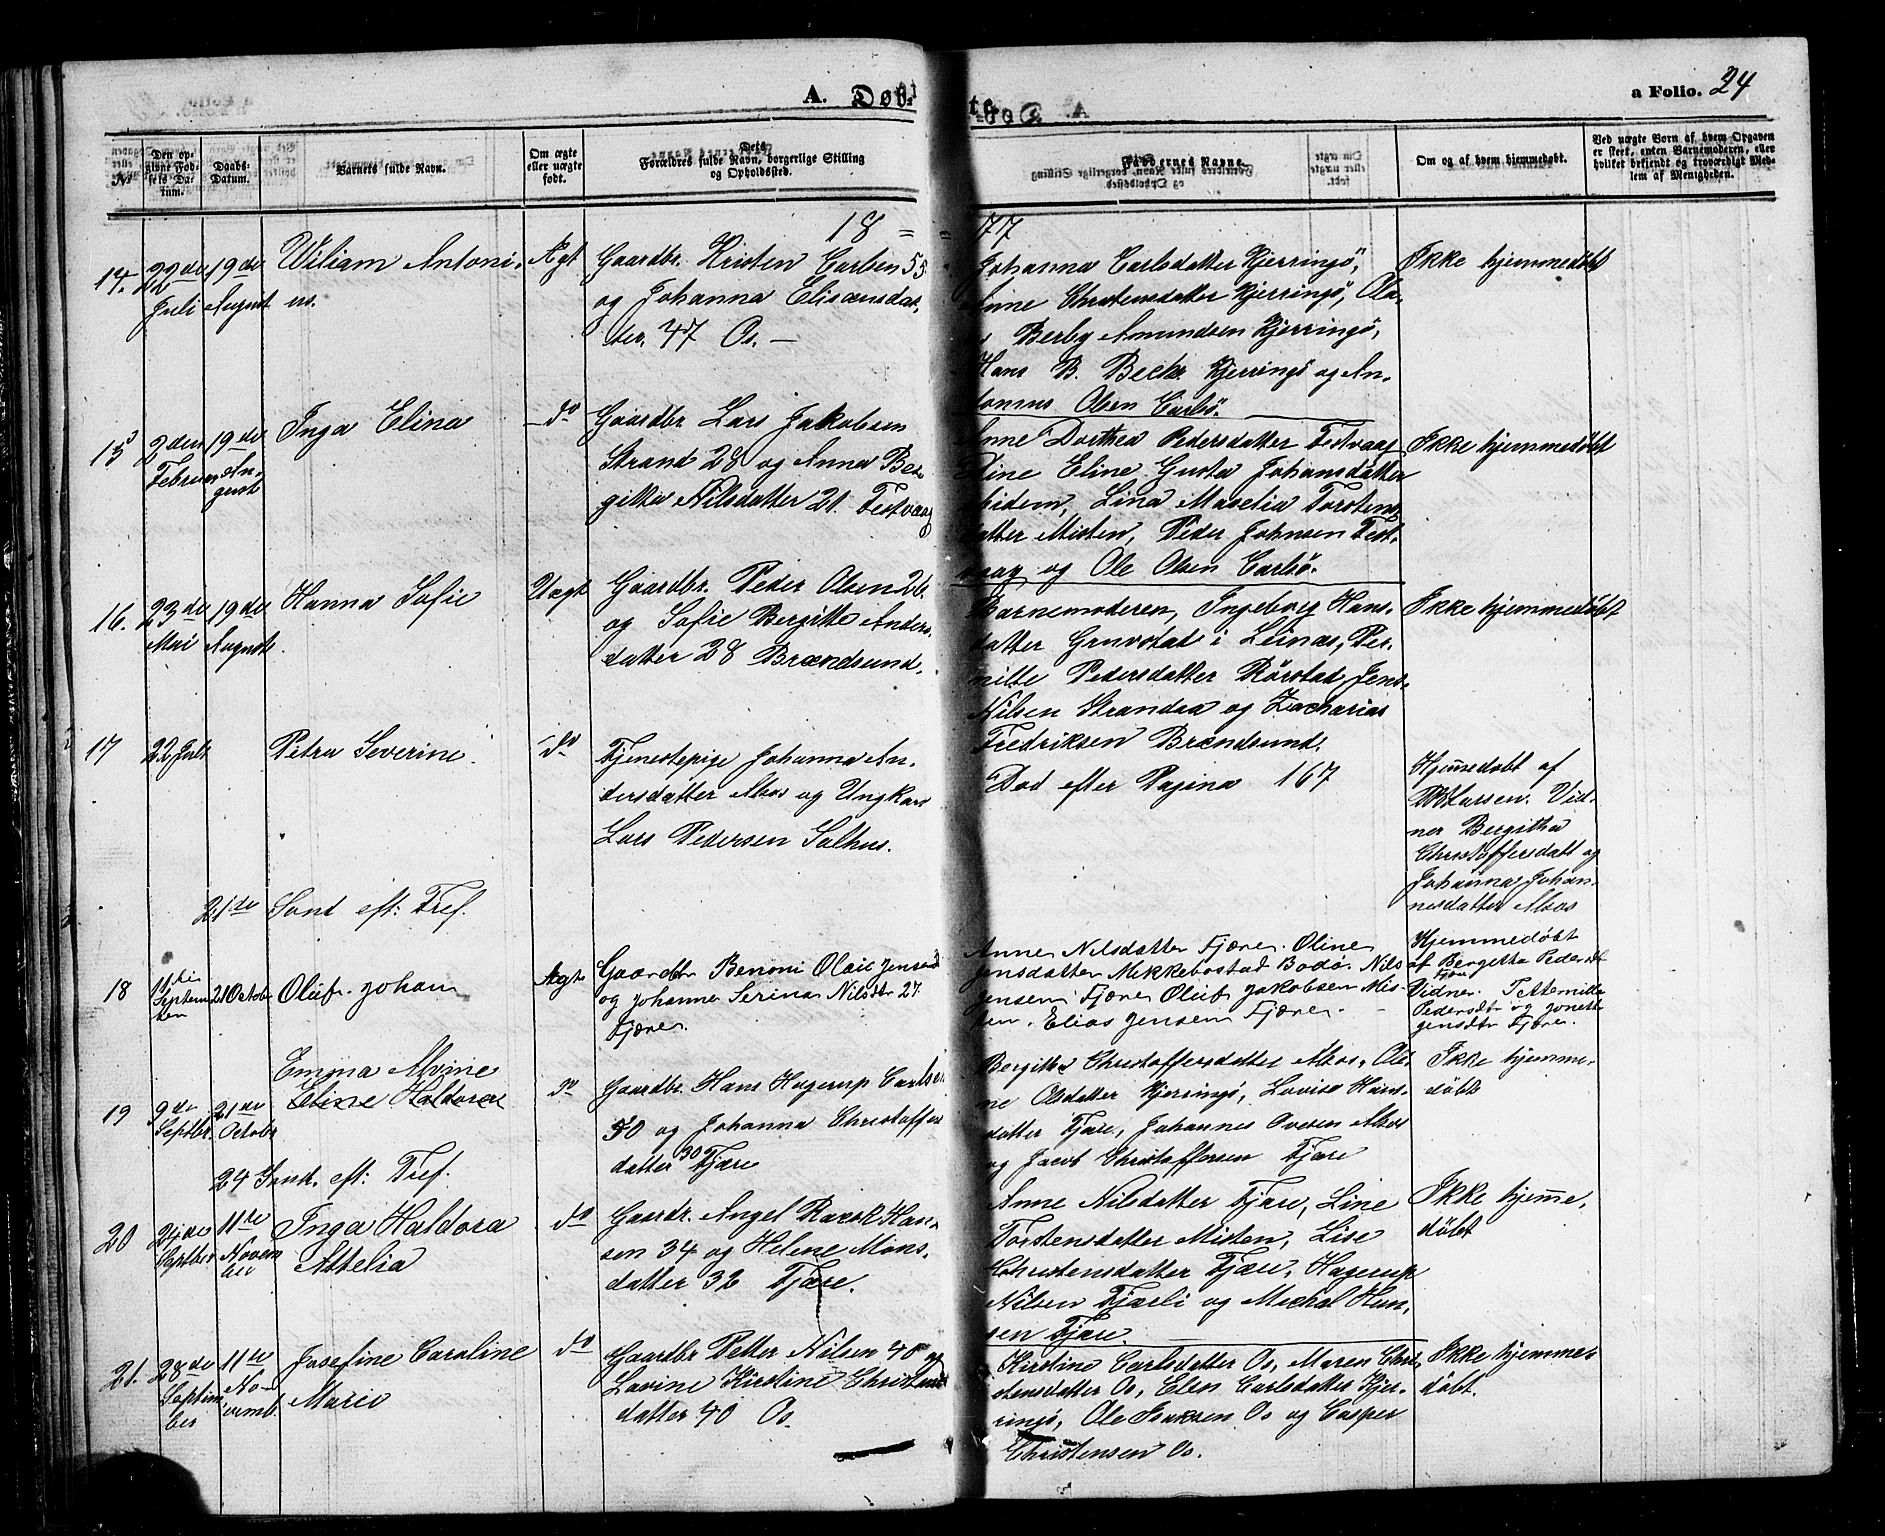 A. Døbte.
a Folio. 24
№
Den opgivne Fødsels Datum.
Daabs-Datum.
Barnets fulde Navn.
Om ægte eller uægte født.
Dets Forældres fulde Navn, borgerlige Stilling og Opholdssted.
Faddernes Navne.
Om og af hvem hjemmedøbt.
Ved uægte Børn af hvem Opgaven er skeet, enten Barnemoderen, eller hvilket bekjendt og troværdigt Medlem af Menigheden.
18 = = 77
14. 22de Juli 19de August
Wiliam Antoni-
us.
Ægt
Gaardbr. Kristen Carlsen 55
og Johanna Elisæusdat-
ter. 47 Os. —
Johanna Carlsdatter Kjerringö,
Anne Christensdatter Kjerringö, Ola-
Berby Amundsen Kjerringö,
Hans B. Beck Kjerringö og An-
tonius Olsen Carlsö.
Ikke hjemmedöbt
15 2den Februar 19de August
Inga Elina
do
Gaardbr Lars Jakobsen
Strand 28 og Anna Ber-
gitta Nilsdatter 21. Festvaag
Anne Dorthea Pedersdatter Festvaag
Eline Gusta Johansdatter
ibidem, Lina Maselia Torstens-
datter Misten, Peder Johnsen Fest-
vaag og Ole Olsen Carlsö.
Ikke hjemmedöbt
16. 23de Mai 19de August
Hanna Sofie
Uægt
Gaardbr. Peder Olsen 26
og Sofie Bergitte Anders-
datter 28 Brændsund.
Barnemoderen, Ingeborg Hans-
datter Grnvstad i Leinas, Per-
nille Pedersdatter Rörstad, Jens
Nilsen Strandaa og Zacharias
Fredriksen Brændsund.
Ikke hjemmedöbt
17 22 Juli
Petra Severine
do
Tjenestepige Johanna An-
dersdatter Alsos og Ungkarl
Lars Pedersen Salhus.
Död efter Pagina 167
Hjem̄edöbt af
Larsen. Vid-
ner Bergitha
Christoffersdatt og
Johanna Johan-
nesdatter Alsos
21de Sønd eft: Tref.
18 11te September 21 Octobr
Oluf Johan
Ægt
Gaardbr Benoni Olaie Jensen
og Johanna Serina Nilsdtr 27.
Fjære.
Anne Nilsdatter Fjære. Oline
Jensdatter Mikkebostad Bodö. Nils
Jensen Fjære Oluf Jakobsen Mis-
ten. Elias Jensen Fjære.
Hjemmedöbt
af Bergitta Pedersdt
Fjære
Vidner. Petternille
Pedersdtr og Jonette
Jensdtr Fjære.
19 9de Septbr. 21de Octobr
Emma Alvine
Eline Haldora
do
Gaardbr. Hans Hagerup Carlsen
30 og Johanna Christoffers
datter 30 Fjære
Bergitha Christoffersdatter Alsos, Oli-
ne Olsdatter Kjerringö, Lovise Hans-
datter Fjære, Johannes Ovesen Alsos
og Jacob Christoffersen Fjære
Ikke hjemme-
döbt
24 Sönd. eft: Tref.
20 24de Septber 11te November
Inga Haldora
Attelia
do
Gaardbr. Angel Rarsk Han-
sen 34 og Helene Mons-
datter 32 Fjære.
Anne Nilsdatter Fjære, Line
Torstensdatter Misten, Lise
Christensdatter Fjære, Hagerup
Nilsen Fjærli og Michal Han-
sen Fjære.
Ikke hjem̄e-
döbt
21. 28de September 11te Novemb.
Josefine Caroline
Marie
do
Gaardbr Petter Nilsen 40 og
Lovine Kirstine Christens
datter 40 Os.
Kirstine Carlsdatter Os, Maren Chri-
stensdatter Os, Elen Carlsdatter Kjer-
ringö, Ole Isaksen Os og Casper
Christensen Os.
Ikke hjemme
döbt.